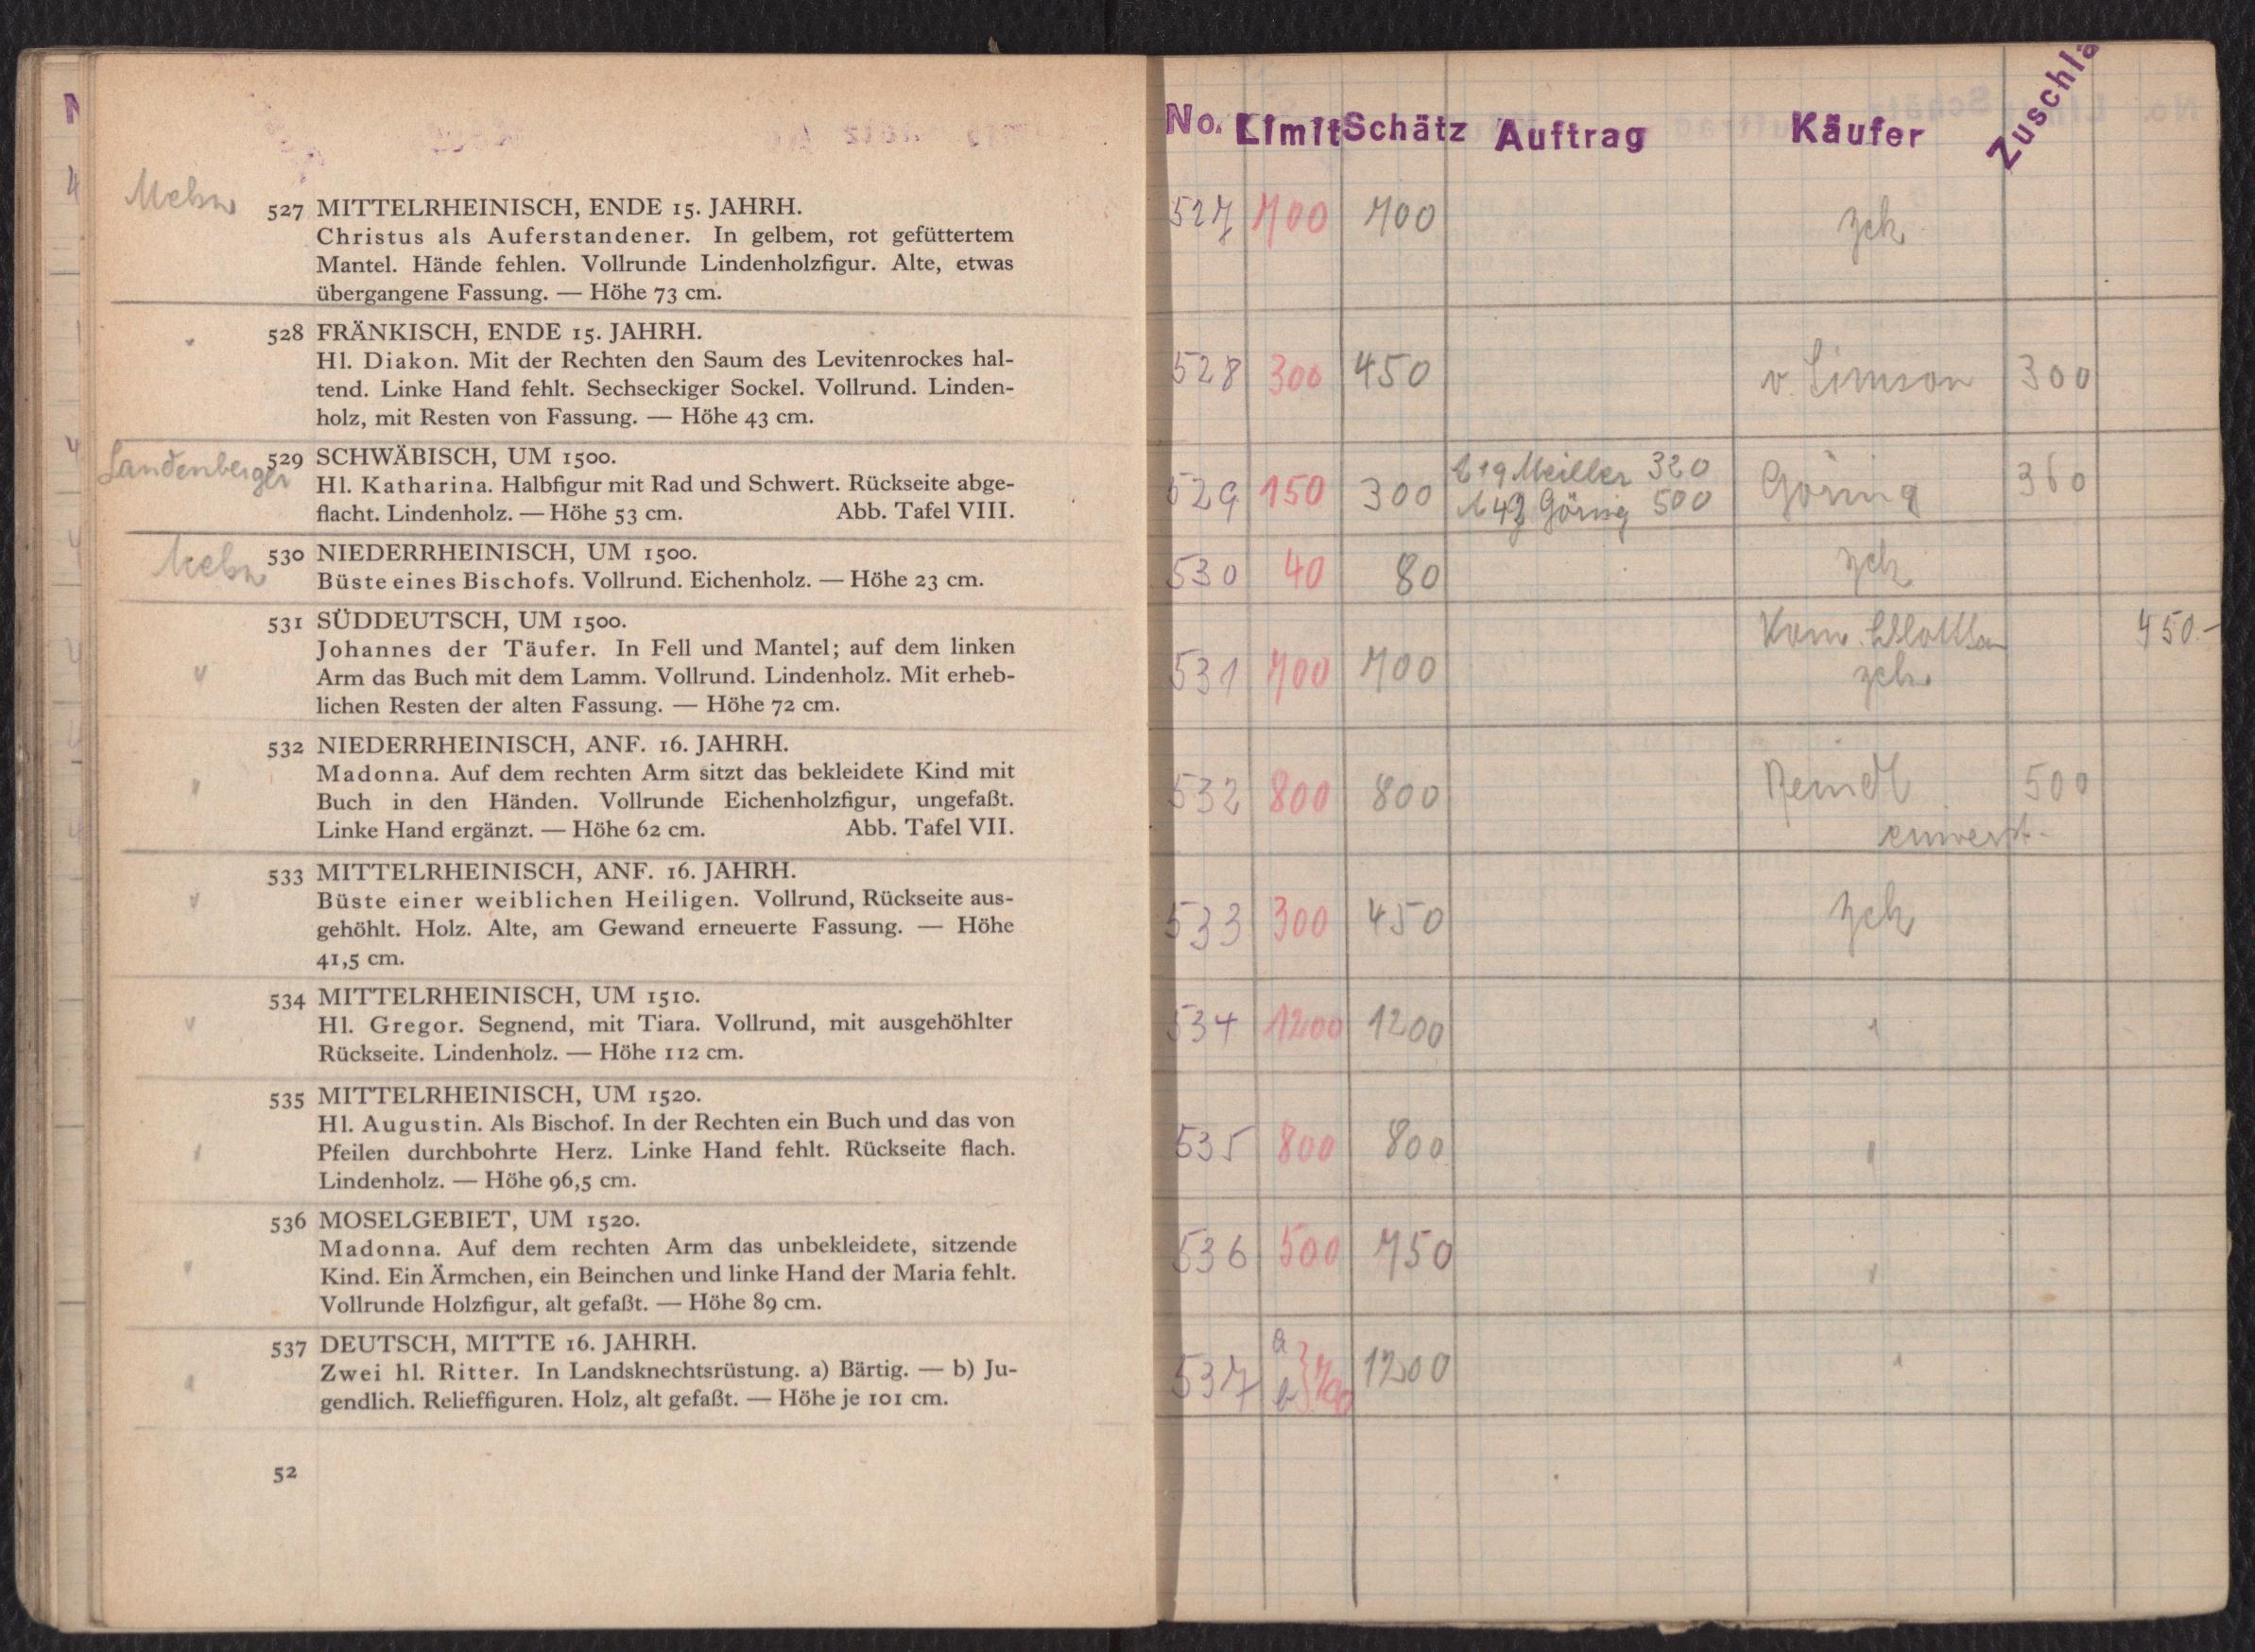 527 MITTELRHEINISCH, ENDE 15. JAHRH.
Christus als Auferstandener. In gelbem, rot gefüttertem
Mantel. Hände fehlen. Vollrunde Lindenholzfigur. Alte, etwas
übergangene Fassung. — Höhe 73 cm.
528 FRÄNKISCH, ENDE 15. JAHRH.
Hl. Diakon. Mit der Rechten den Saum des Levitenrockes hal-
tend. Linke Hand fehlt. Sechseckiger Sockel. Vollrund. Linden-
holz, mit Resten von Fassung. — Höhe 43 cm.
Landenberger
529 SCHWÄBISCH, UM 1500.
Hl. Katharina. Halbfigur mit Rad und Schwert. Rückseite abge-
flacht. Lindenholz. — Höhe 53 cm. Abb. Tafel VIII.
530 NIEDERRHEINISCH, UM 1500.
Büste eines Bischofs. Vollrund. Eichenholz. — Höhe 23 cm.
531 SÜDDEUTSCH, UM 1500.
Johannes der Täufer. In Fell und Mantel; auf dem linken
Arm das Buch mit dem Lamm. Vollrund. Lindenholz. Mit erheb-
lichen Resten der alten Fassung. — Höhe 72 cm.
532 NIEDERRHEINISCH, ANF. 16. JAHRH.
Madonna. Auf dem rechten Arm sitzt das bekleidete Kind mit
Buch in den Händen. Vollrunde Eichenholzfigur, ungefaßt.
Linke Hand ergänzt. — Höhe 62 cm. Abb. Tafel VII.
533 MITTELRHEINISCH, ANF. 16. JAHRH.
Büste einer weiblichen Heiligen. Vollrund, Rückseite aus-
gehöhlt. Holz. Alte, am Gewand erneuerte Fassung. — Höhe
41,5 cm.
534 MITTELRHEINISCH, UM 1510.
Hl. Gregor. Segnend, mit Tiara. Vollrund, mit ausgehöhlter
Rückseite. Lindenholz. — Höhe 112 cm.
535 MITTELRHEINISCH, UM 1520.
Hl. Augustin. Als Bischof. In der Rechten ein Buch und das von
Pfeilen durchbohrte Herz. Linke Hand fehlt. Rückseite flach.
Lindenholz. — Höhe 96,5 cm.
536 MOSELGEBIET, UM 1520.
Madonna. Auf dem rechten Arm das unbekleidete, sitzende
Kind. Ein Ärmchen, ein Beinchen und linke Hand der Maria fehlt.
Vollrunde Holzfigur, alt gefaßt. — Höhe 89 cm.
537 DEUTSCH, MITTE 16. JAHRH.
Zwei hl. Ritter. In Landsknechtsrüstung. a) Bärtig. — b) Ju-
gendlich. Relieffiguren. Holz, alt gefaßt. — Höhe je 101 cm.
52
No. Limit Schätz Auftrag Käufer Zuschla
527 700 700 zck
528 300 450 v. Simson 300
529 150 300 Meiller 320 Göring 360
Göring 500
530 40 80 zck
450.-
531 700 700 zck
532 800 800 Reindl 500
533 300 450 zck
534 1200 1200
535 800 800
536 500 750
537 a b 1200